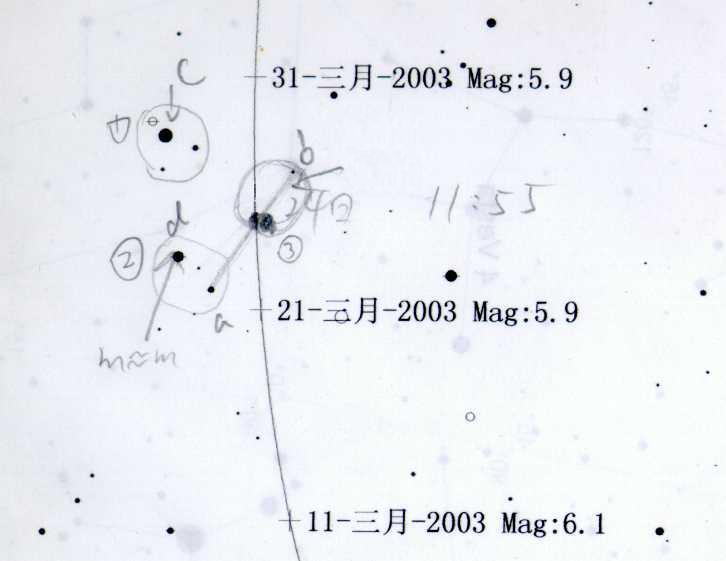 31-三月-2003 Mag:5.9
C
①
b
24日 11:55
d
②
③
a
21-三月-2003 Mag:5.9
m≈m
11-三月-2003 Mag:6.1